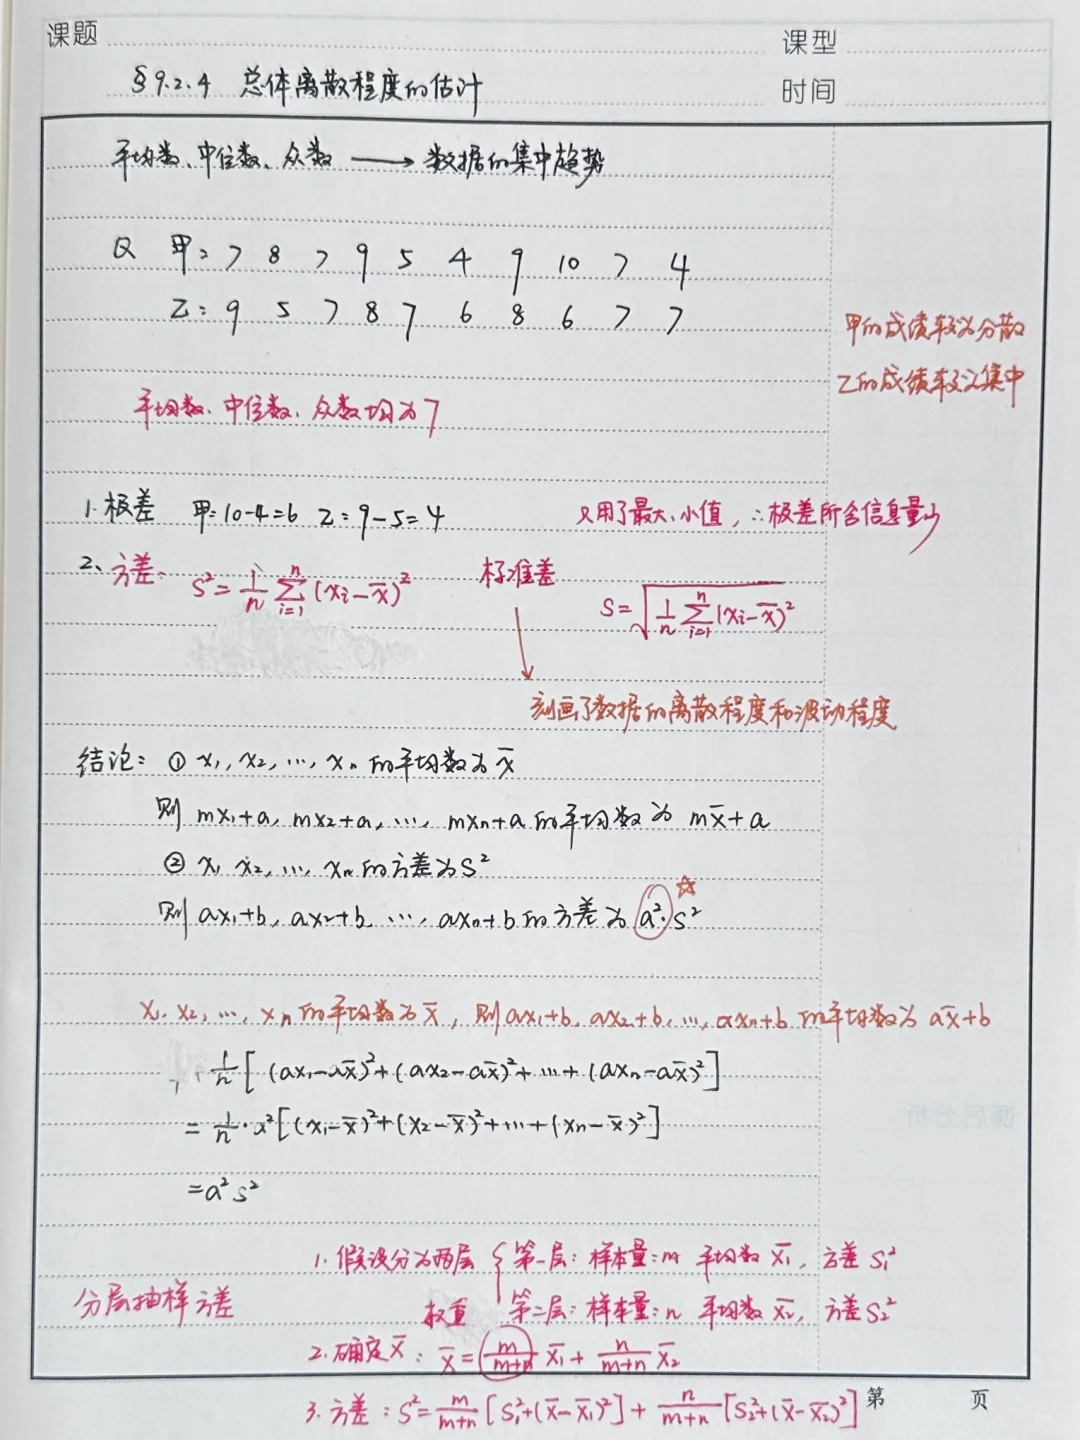 课题
课型
§9.2.4 总体离散程度的估计
时间
平均数、中位数、众数 → 数据的集中趋势
Q 甲: 7 8 7 9 5 4 9 10 7 4
乙: 9 5 7 8 7 6 8 6 7 7
甲的成绩较为分散
乙的成绩较为集中
平均数、中位数、众数均为7
1. 极差 甲: 10-4=6 乙: 9-5=4 只用了最大、小值, ∴极差所含信息量少
2、方差: S²=1/n ∑_{i=1}^{n} (xi-x̄)² 标准差 S=√(1/n ∑_{i=1}^{n} (xi-x̄)²)
刻画了数据的离散程度和波动程度
结论: ① x₁, x₂, …, xn 的平均数为 x̄
则 mx₁+a, mx₂+a, …, mxn+a 的平均数为 mx̄+a
② x₁ x₂, …, xn 的方差为 S²
则 ax₁+b, ax₂+b, …, axn+b 的方差为 a²·S² ☆
x₁, x₂, …, xn 的平均数为 x̄, 则 ax₁+b, ax₂+b, …, axn+b 的平均数为 ax̄+b
1/n [(ax₁-ax̄)²+(ax₂-ax̄)²+…+(axn-ax̄)²]
= 1/n·a²[(x₁-x̄)²+(x₂-x̄)²+…+(xn-x̄)²]
=a²s²
分层抽样方差
1. 假设分为两层 { 第一层: 样本量: m 平均数 x̄₁, 方差 S₁²
第二层: 样本量: n 平均数 x̄₂, 方差 S₂²
权重
2. 确定x̄: x̄ = m/(m+n) x̄₁ + n/(m+n) x̄₂
3. 方差: S²= m/(m+n) [S₁²+(x̄-x̄₁)²] + n/(m+n) [S₂²+(x̄-x̄₂)²]
第 页